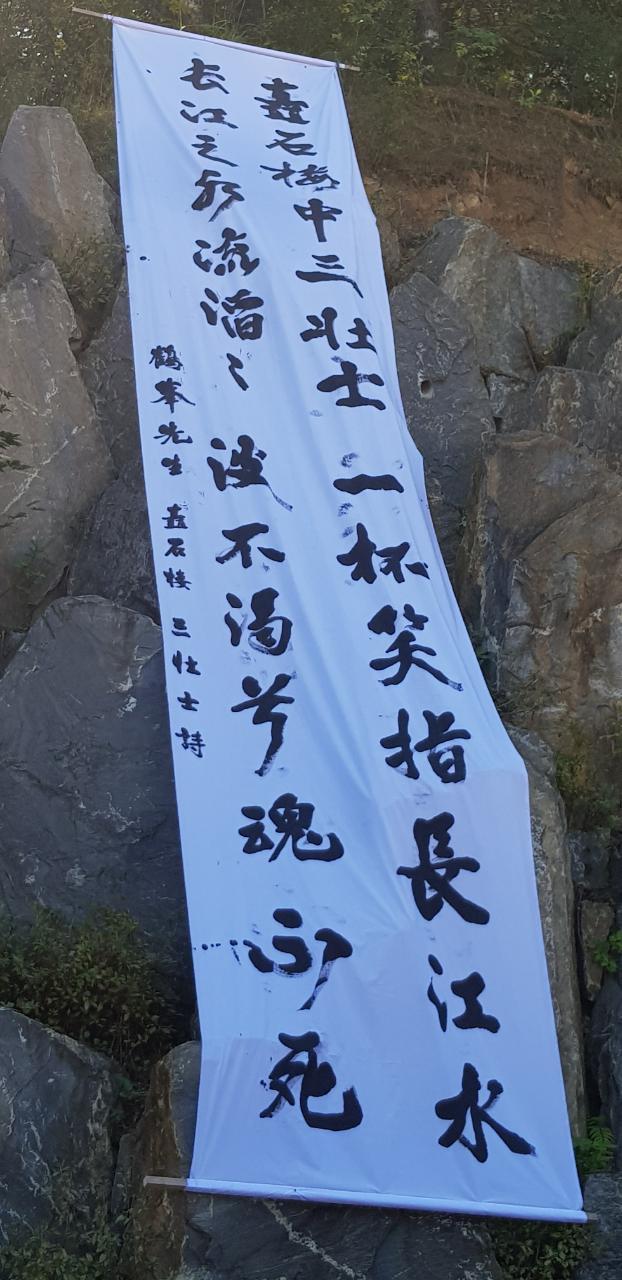 矗石楼中三壮士 一杯笑指長江水
长江之水流滔〻 波不渴兮魂不死
鶴峯先生 矗石楼 三壮士 詩